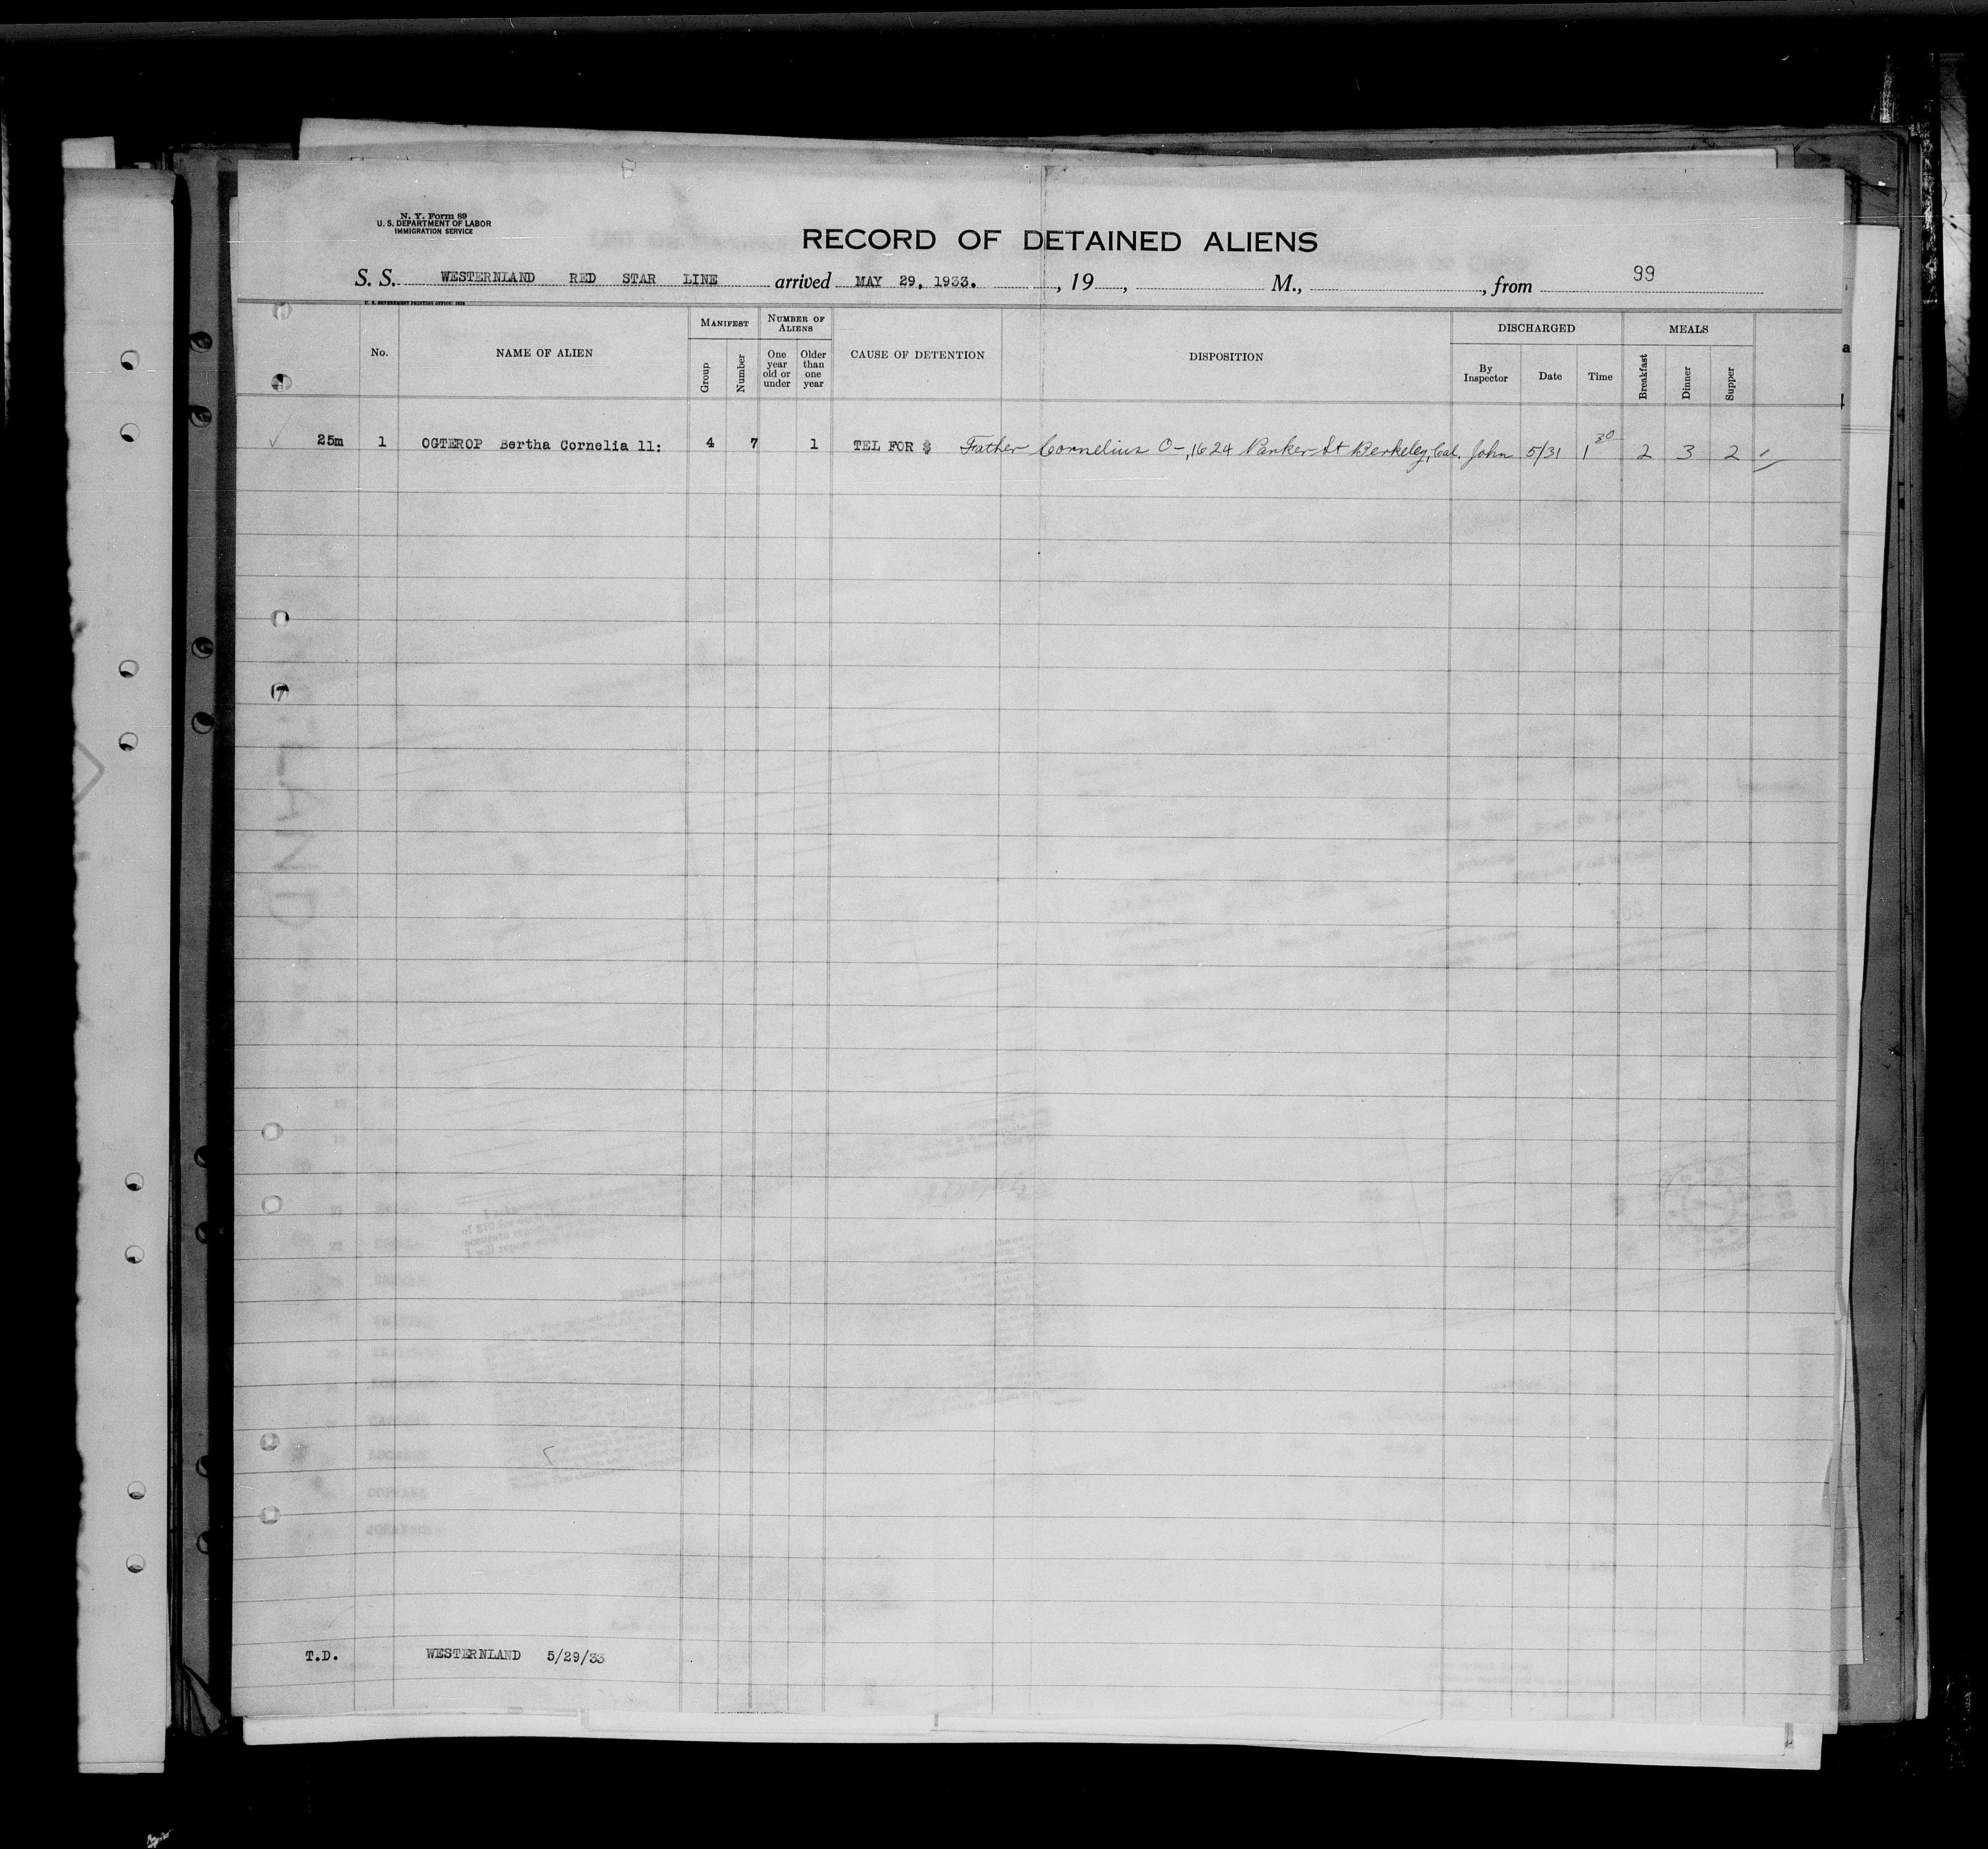 N. Y. Form 89
U. S. DEPARTMENT OF LABOR
IMMIGRATION SERVICE
RECORD OF DETAINED ALIENS
S. S. WESTERNLAND RED STAR LINE arrived MAY 29, 1933. , 19 , M., , from 99
U. S. GOVERNMENT PRINTING OFFICE:
No. NAME OF ALIEN MANIFEST Group Number NUMBER OF ALIENS One year old or under Older than one year CAUSE OF DETENTION DISPOSITION DISCHARGED By Inspector Date Time MEALS Breakfast Dinner Supper
25m 1 OGTEROP Bertha Cornelia 11: 4 7 1 TEL FOR $ Father Cornelius O-, 1624 Parker St Berkeley, Cal. John 5/31 1 30 2 3 2
T.D. WESTERNLAND 5/29/33